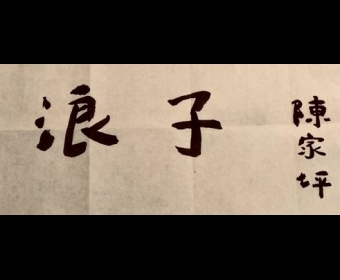 浪子
陳家坪